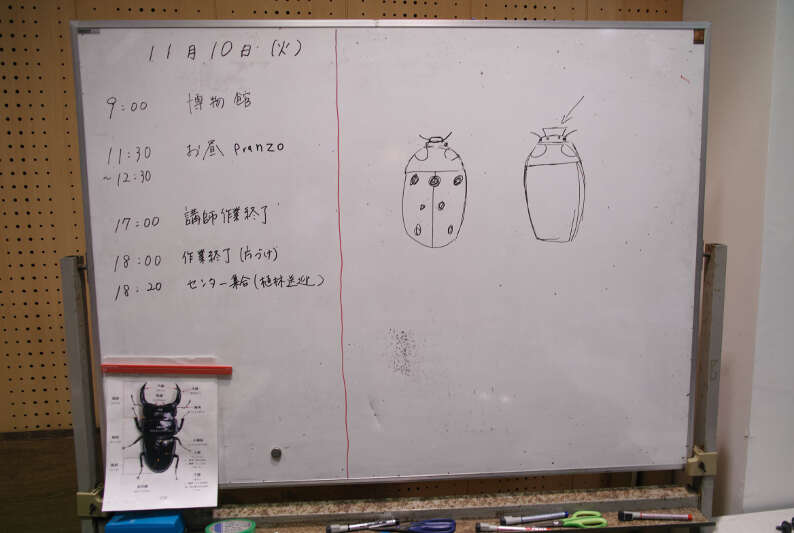 11月10日(火)
9:00 博物館
11:30 お昼 Pranzo
~12:30
17:00 講師作業終了
18:00 作業終了(片づけ)
18:20 センター集合(植林送迎)